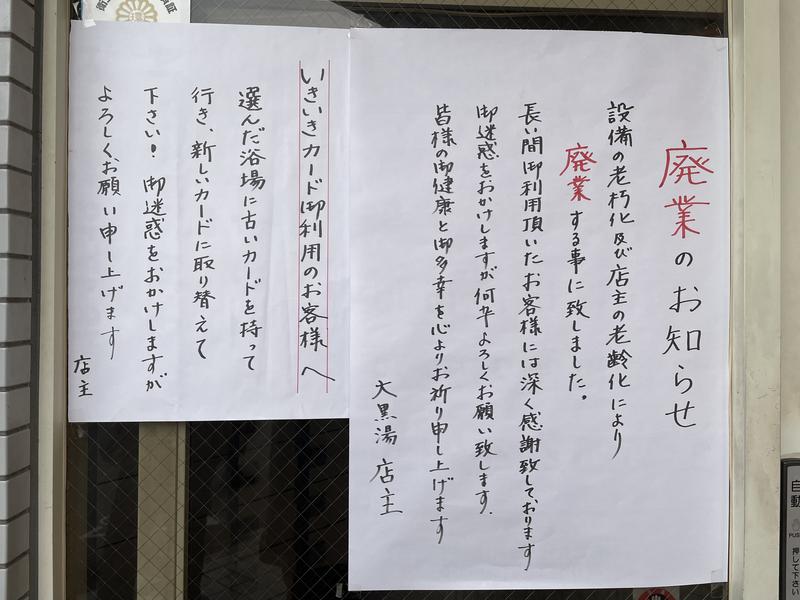 廃業のお知らせ
設備の老朽化及び店主の老齢化により
廃業する事に致しました。
長い間御利用頂いたお客様には深く感謝致しております
御迷惑をおかけしますが何卒よろしくお願い致します.
皆様の御健康と御多幸を心よりお祈り申し上げます
大黒湯 店主
いきいきカード御利用のお客様へ
選んだ浴場に古いカードを持って
行き、新しいカードに取り替えて
下さい! 御迷惑をおかけしますが
よろしくお願い申し上げます
店主
自動
PUSH
押して下さい